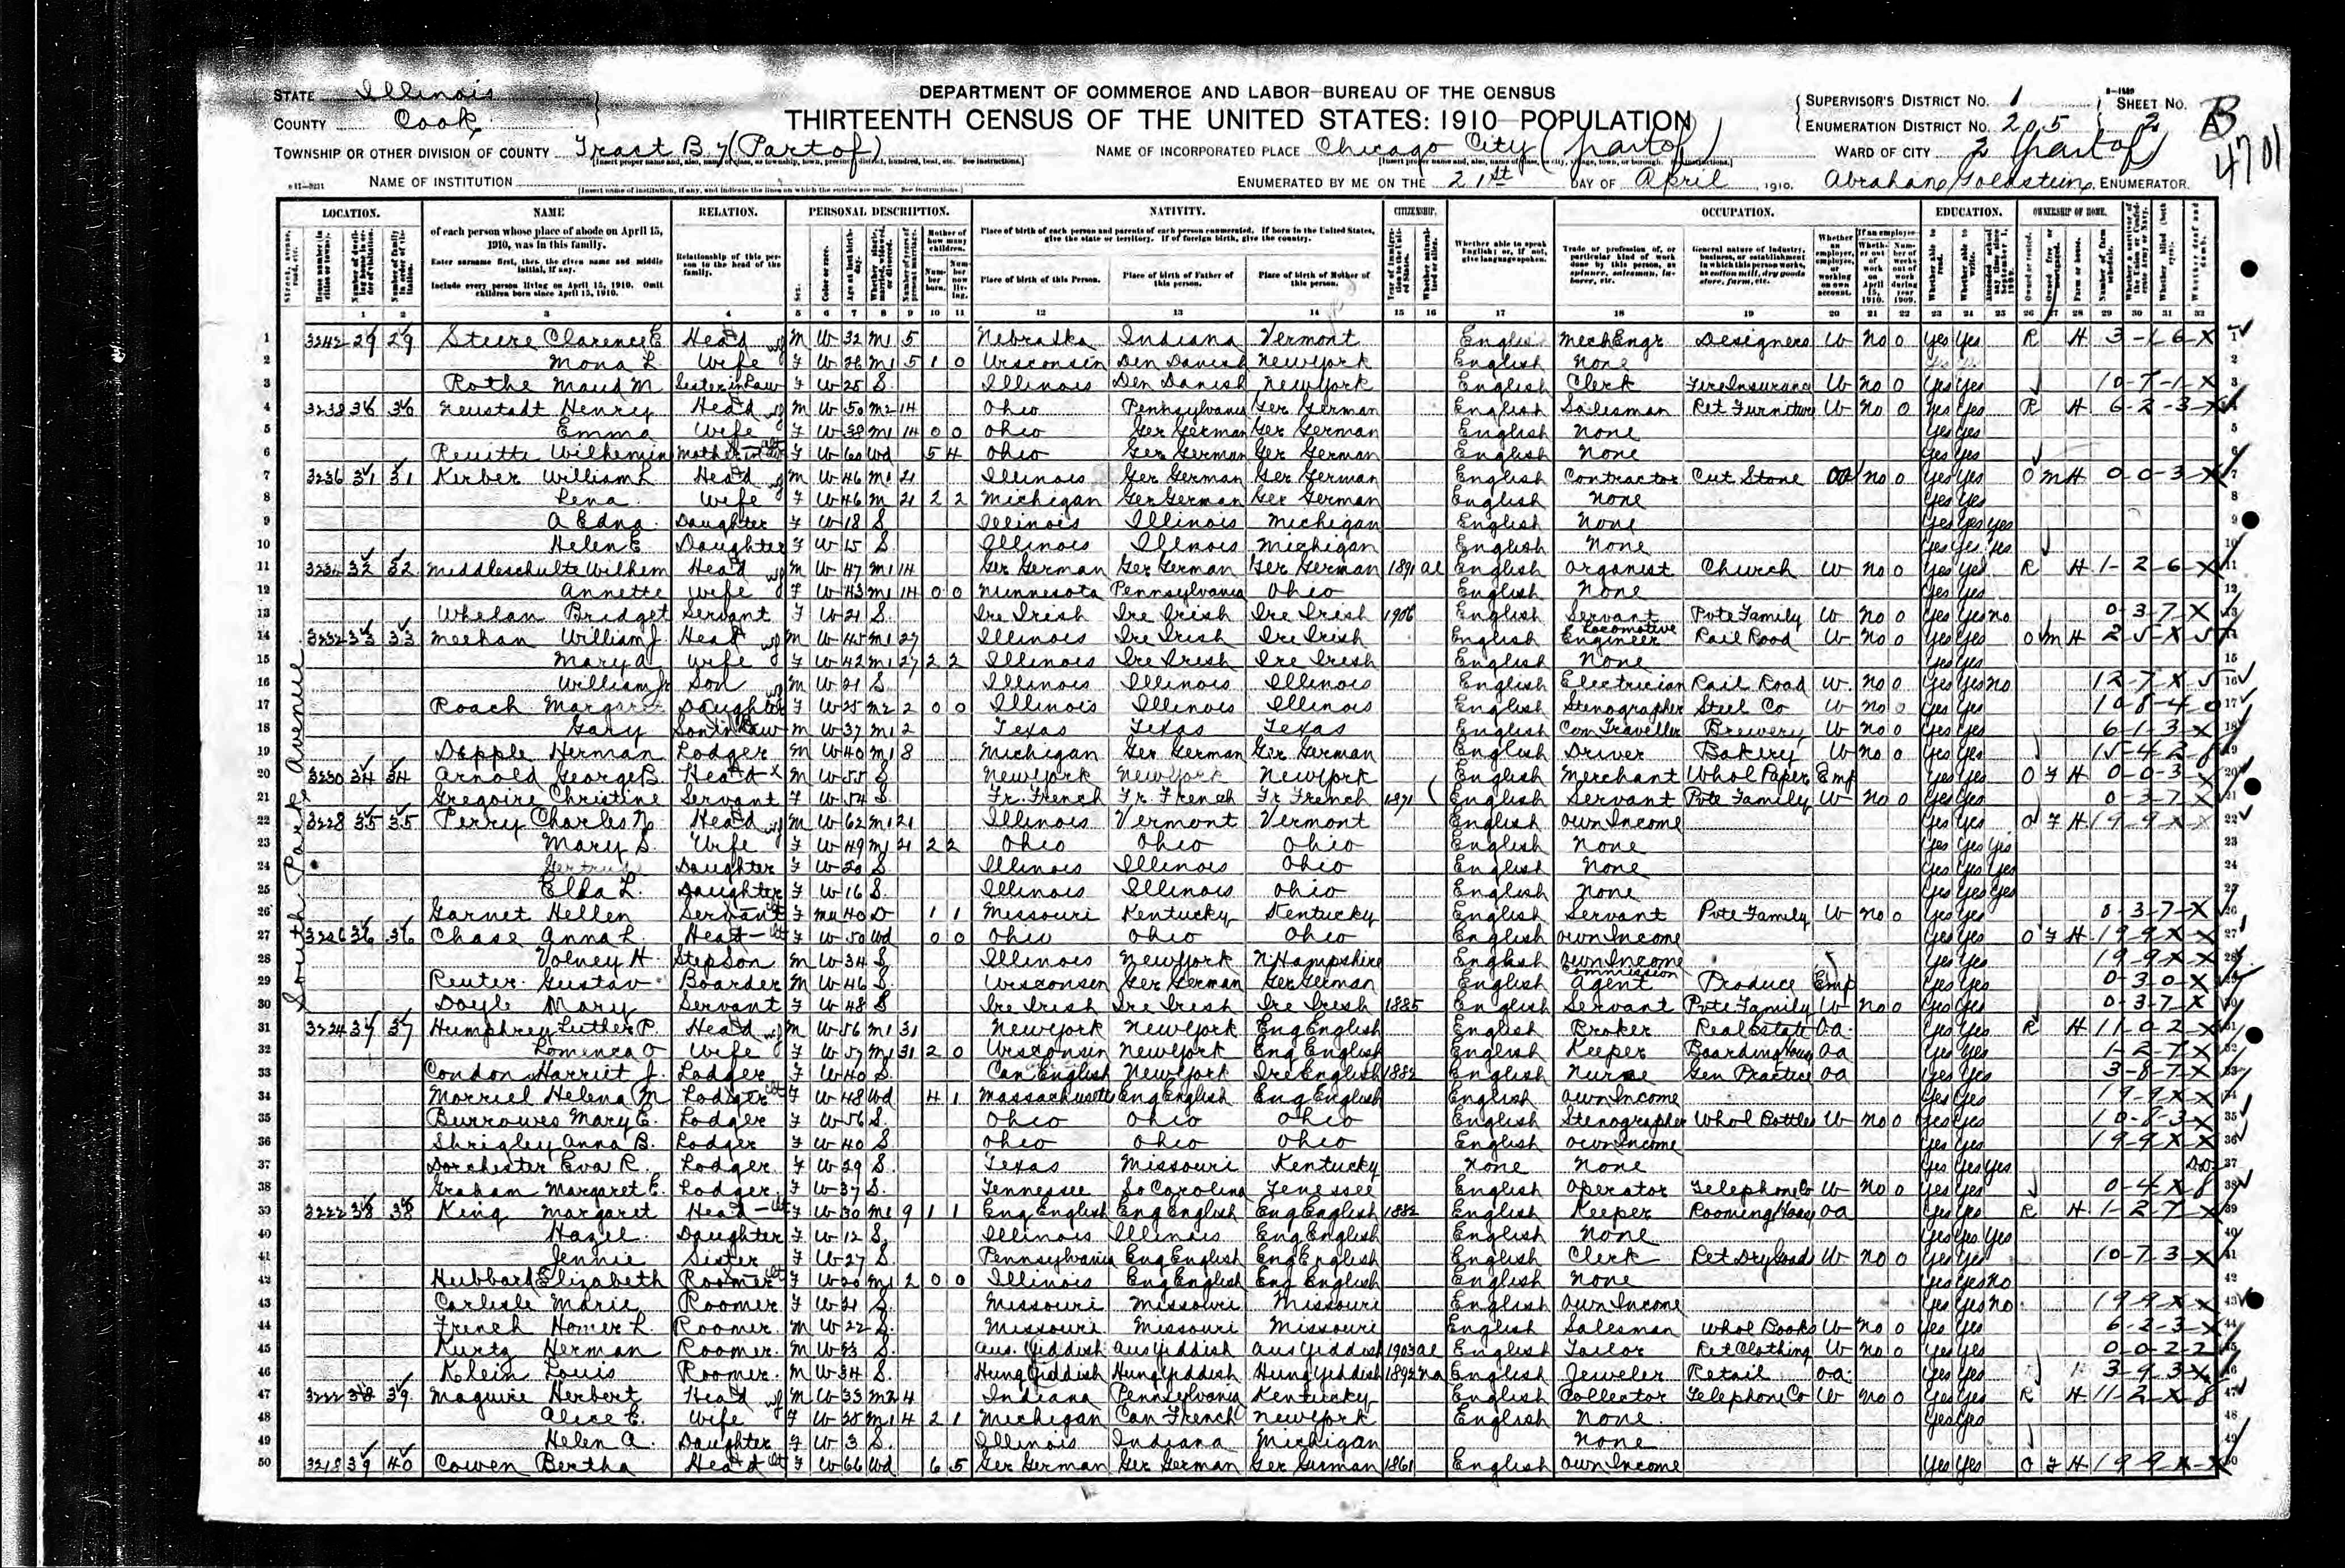 DEPARTMENT OF COMMERCE AND LABOR—BUREAU OF THE CENSUS
THIRTEENTH CENSUS OF THE UNITED STATES: 1910—POPULATION
STATE Illinois
COUNTY Cook
TOWNSHIP OR OTHER DIVISION OF COUNTY Tract B 7 (Part of)
NAME OF INSTITUTION
NAME OF INCORPORATED PLACE Chicago City (part of)
ENUMERATED BY ME ON THE 21st DAY OF April, 1910.
SUPERVISOR'S DISTRICT NO. 1 SHEET NO. 2 B
ENUMERATION DISTRICT NO. 205
4701
WARD OF CITY 2 (part of)
Abraham Goldstein, ENUMERATOR.
LOCATION. NAME RELATION. PERSONAL DESCRIPTION. NATIVITY. CITIZENSHIP. OCCUPATION. EDUCATION. OWNERSHIP OF HOME.
of each person whose place of abode on April 15, 1910, was in this family.
Enter surname first, then the given name and middle initial, if any.
Include every person living on April 15, 1910. Omit children born since April 15, 1910.
Relationship of this person to the head of the family.
Place of birth of each person and parents of each person enumerated. If born in the United States, give the state or territory. If of foreign birth, give the country.
Place of birth of this Person. Place of birth of Father of this person. Place of birth of Mother of this person.
Whether able to speak English; or, if not, give language spoken.
South Park Avenue
1 3242 29 29 Steere Clarence E Head M W 32 M1 5 Nebraska Indiana Vermont English Mech Engr Designers W No 0 Yes Yes R H 3-1-6-X
2 Mona L. Wife F W 26 M1 5 1 0 Wisconsin Den Danish New York English None
3 Rothe Maud M Sister in Law F W 25 S. Illinois Den Danish New York English Clerk Fire Insurance W No 0 Yes Yes 10-7-1-X
4 3238 30 30 Neustadt Henry Head M W 50 M2 14 Ohio Pennsylvania Ger German English Salesman Ret Furniture W No 0 Yes Yes R H 6-2-3-X
5 Emma Wife F W 38 M1 14 0 0 Ohio Ger German Ger German English None Yes Yes
6 Wilhemin Mother in Law F W 60 Wd 5 4 Ohio Ger German Ger German English None Yes Yes
7 3236 31 31 Kerber William L Head M W 46 M1 21 Illinois Ger German Ger German English Contractor Cut Stone OA No 0 Yes Yes O M H 0-0-3-X
8 Lena Wife F W 46 M 21 2 2 Michigan Ger German Ger German English None Yes Yes
9 A Edna Daughter F W 18 S Illinois Illinois Michigan English None Yes Yes Yes
10 Helen E Daughter F W 15 S. Illinois Illinois Michigan English None Yes Yes Yes
11 3234 32 32 Middleschulte Wilhem Head M W 47 M1 14 Ger German Ger German Ger German 1891 al English Organist Church W No 0 Yes Yes R H 1-2-6-X
12 Annette Wife F W 43 M1 14 0 0 Minnesota Pennsylvania Ohio English None Yes Yes
13 Whelan Bridget Servant F W 21 S. Ire Irish Ire Irish Ire Irish 1906 English Servant Pvte Family W No 0 Yes Yes No 0-3-7-X
14 3232 33 33 Meehan William J. Head M W 45 M1 27 Illinois Ire Irish Ire Irish English Locomotive Engineer Rail Road W No 0 Yes Yes O M H 2-5-X-5
15 Mary A. Wife F W 42 M1 27 2 2 Illinois Ire Irish Ire Irish English None Yes Yes
16 William Jr Son M W 21 S Illinois Illinois Illinois English Electrician Rail Road W. No 0 Yes Yes No 12-7-X-5
17 Roach Margaret Daughter F W 25 M2 2 0 0 Illinois Illinois Illinois English Stenographer Steel Co W No 0 Yes Yes 10-8-4-0
18 Gary Son in Law M W 37 M1 2 Texas Texas Texas English Com Traveller Brewery W No 0 Yes Yes 6-1-3-X
19 Depple Herman Lodger M W 40 M1 8 Michigan Ger German Ger German English Driver Bakery W No 0 Yes Yes 15-4-2-8
20 3230 34 34 Arnold George B. Head X M W 55 S New York New York New York English Merchant Whol Paper Emp Yes Yes O F H 0-0-3-X
21 Gregoire Christine Servant F W 54 S. Fr. French Fr. French Fr French 1871 English Servant Pvte Family W No 0 Yes Yes 0-3-7-X
22 3228 35 35 Perry Charles N. Head M W 62 M1 21 Illinois Vermont Vermont English Own Income Yes Yes O F H 19-9-X-X
23 Mary S. Wife F W 49 M1 21 2 2 Ohio Ohio Ohio English None Yes Yes Yes
24 Gertrude Daughter F W 20 S. Illinois Illinois Ohio English None Yes Yes Yes
25 Elda L. Daughter F W 16 S. Illinois Illinois Ohio English None Yes Yes Yes
26 Garnet Hellen Servant F Mu 40 D 1 1 Missouri Kentucky Kentucky English Servant Pvte Family W No 0 Yes Yes 0-3-7-X
27 3226 36 36 Chase Anna L. Head F W 50 Wd 0 0 Ohio Ohio Ohio English Own Income Yes Yes O F H 19-9-X-X
28 Volney H. Step Son M W 34 S. Illinois New York N Hampshire English Own Income Yes Yes 19-9-X-X
29 Reuter Gustav Boarder M W 46 S. Wisconsin Ger German Ger German English Commission Agent Produce Emp Yes Yes 0-3-0-X
30 Doyle Mary Servant F W 48 S Ire Irish Ire Irish Ire Irish 1885 English Servant Pvte Family W No 0 Yes Yes 0-3-7-X
31 3224 37 37 Humphrey Luther P. Head M W 56 M1 31 New York New York Eng English English Broker Real Estate O.A. Yes Yes R H 11-0-2-X
32 Lomenca O Wife F W 57 M1 31 2 0 Wisconsin New York Eng English English Keeper Boarding House OA Yes Yes 1-2-7-X
33 Condon Harriet J. Lodger F W 40 S. Can English New York Ire English 1882 English Nurse Gen Practice OA Yes Yes 3-8-7-X
34 Morriel Helena M Lodger F W 48 Wd 4 1 Massachusetts Eng English Eng English English Own Income Yes Yes 19-9-X-X
35 Burrowes Mary E. Lodger F W 56 S. Ohio Ohio Ohio English Stenographer Whol Bottles W No 0 Yes Yes 10-8-3-X
36 Shrigley Anna B. Lodger F W 40 S. Ohio Ohio Ohio English Own Income Yes Yes 19-9-X-X
37 Dorchester Eva R. Lodger F W 29 S. Texas Missouri Kentucky None None Yes Yes Yes
38 Graham Margaret E. Lodger F W 37 S. Tennessee So Carolina Tenessee English Operator Telephone Co W No 0 Yes Yes 0-4-X-8
39 3222 38 38 King Margaret Head F W 30 M1 9 1 1 Eng English Eng English Eng English 1882 English Keeper Rooming House OA Yes Yes R H 1-2-7-X
40 Hazel Daughter F W 12 S. Illinois Illinois Eng English English None Yes Yes Yes
41 Jennie Sister F W 27 S. Pennsylvania Eng English Eng English English Clerk Ret Dry Goods W No 0 Yes Yes 10-7-3-X
42 Hubbard Elizabeth Roomer F W 20 M1 2 0 0 Illinois Eng English Eng English English None Yes Yes No
43 Carlisle Marie Roomer F W 21 S. Missouri Missouri Missouri English Own Income Yes Yes No 19-9-X-X
44 French Homer L. Roomer. M W 22 S. Missouri Missouri Missouri English Salesman Whol Books W No 0 Yes Yes 6-2-3-X
45 Kurtz Herman Roomer. M W 23 S. Aus. Yiddish Aus Yiddish Aus Yiddish 1903 al English Tailor Ret Clothing W No 0 Yes Yes 0-0-2-2
46 Klein Louis Roomer. M W 34 S. Hung Yiddish Hung Yiddish Hung Yiddish 1892 na English Jeweler Retail O.A. Yes Yes 3-9-3-X
47 3222 38 39 Maguire Herbert Head M W 33 M2 4 Indiana Pennsylvania Kentucky English Collector Telephone Co W No 0 Yes Yes R H 11-2-X-8
48 Alice E. Wife F W 25 M1 4 2 1 Michigan Can French New York English None Yes Yes
49 Helen A. Daughter F W 3 S. Illinois Indiana Michigan None
50 3218 39 40 Cowen Bertha Head F W 66 Wd 6 5 Ger German Ger German Ger German 1861 English Own Income Yes Yes O F H 19-9-X-X